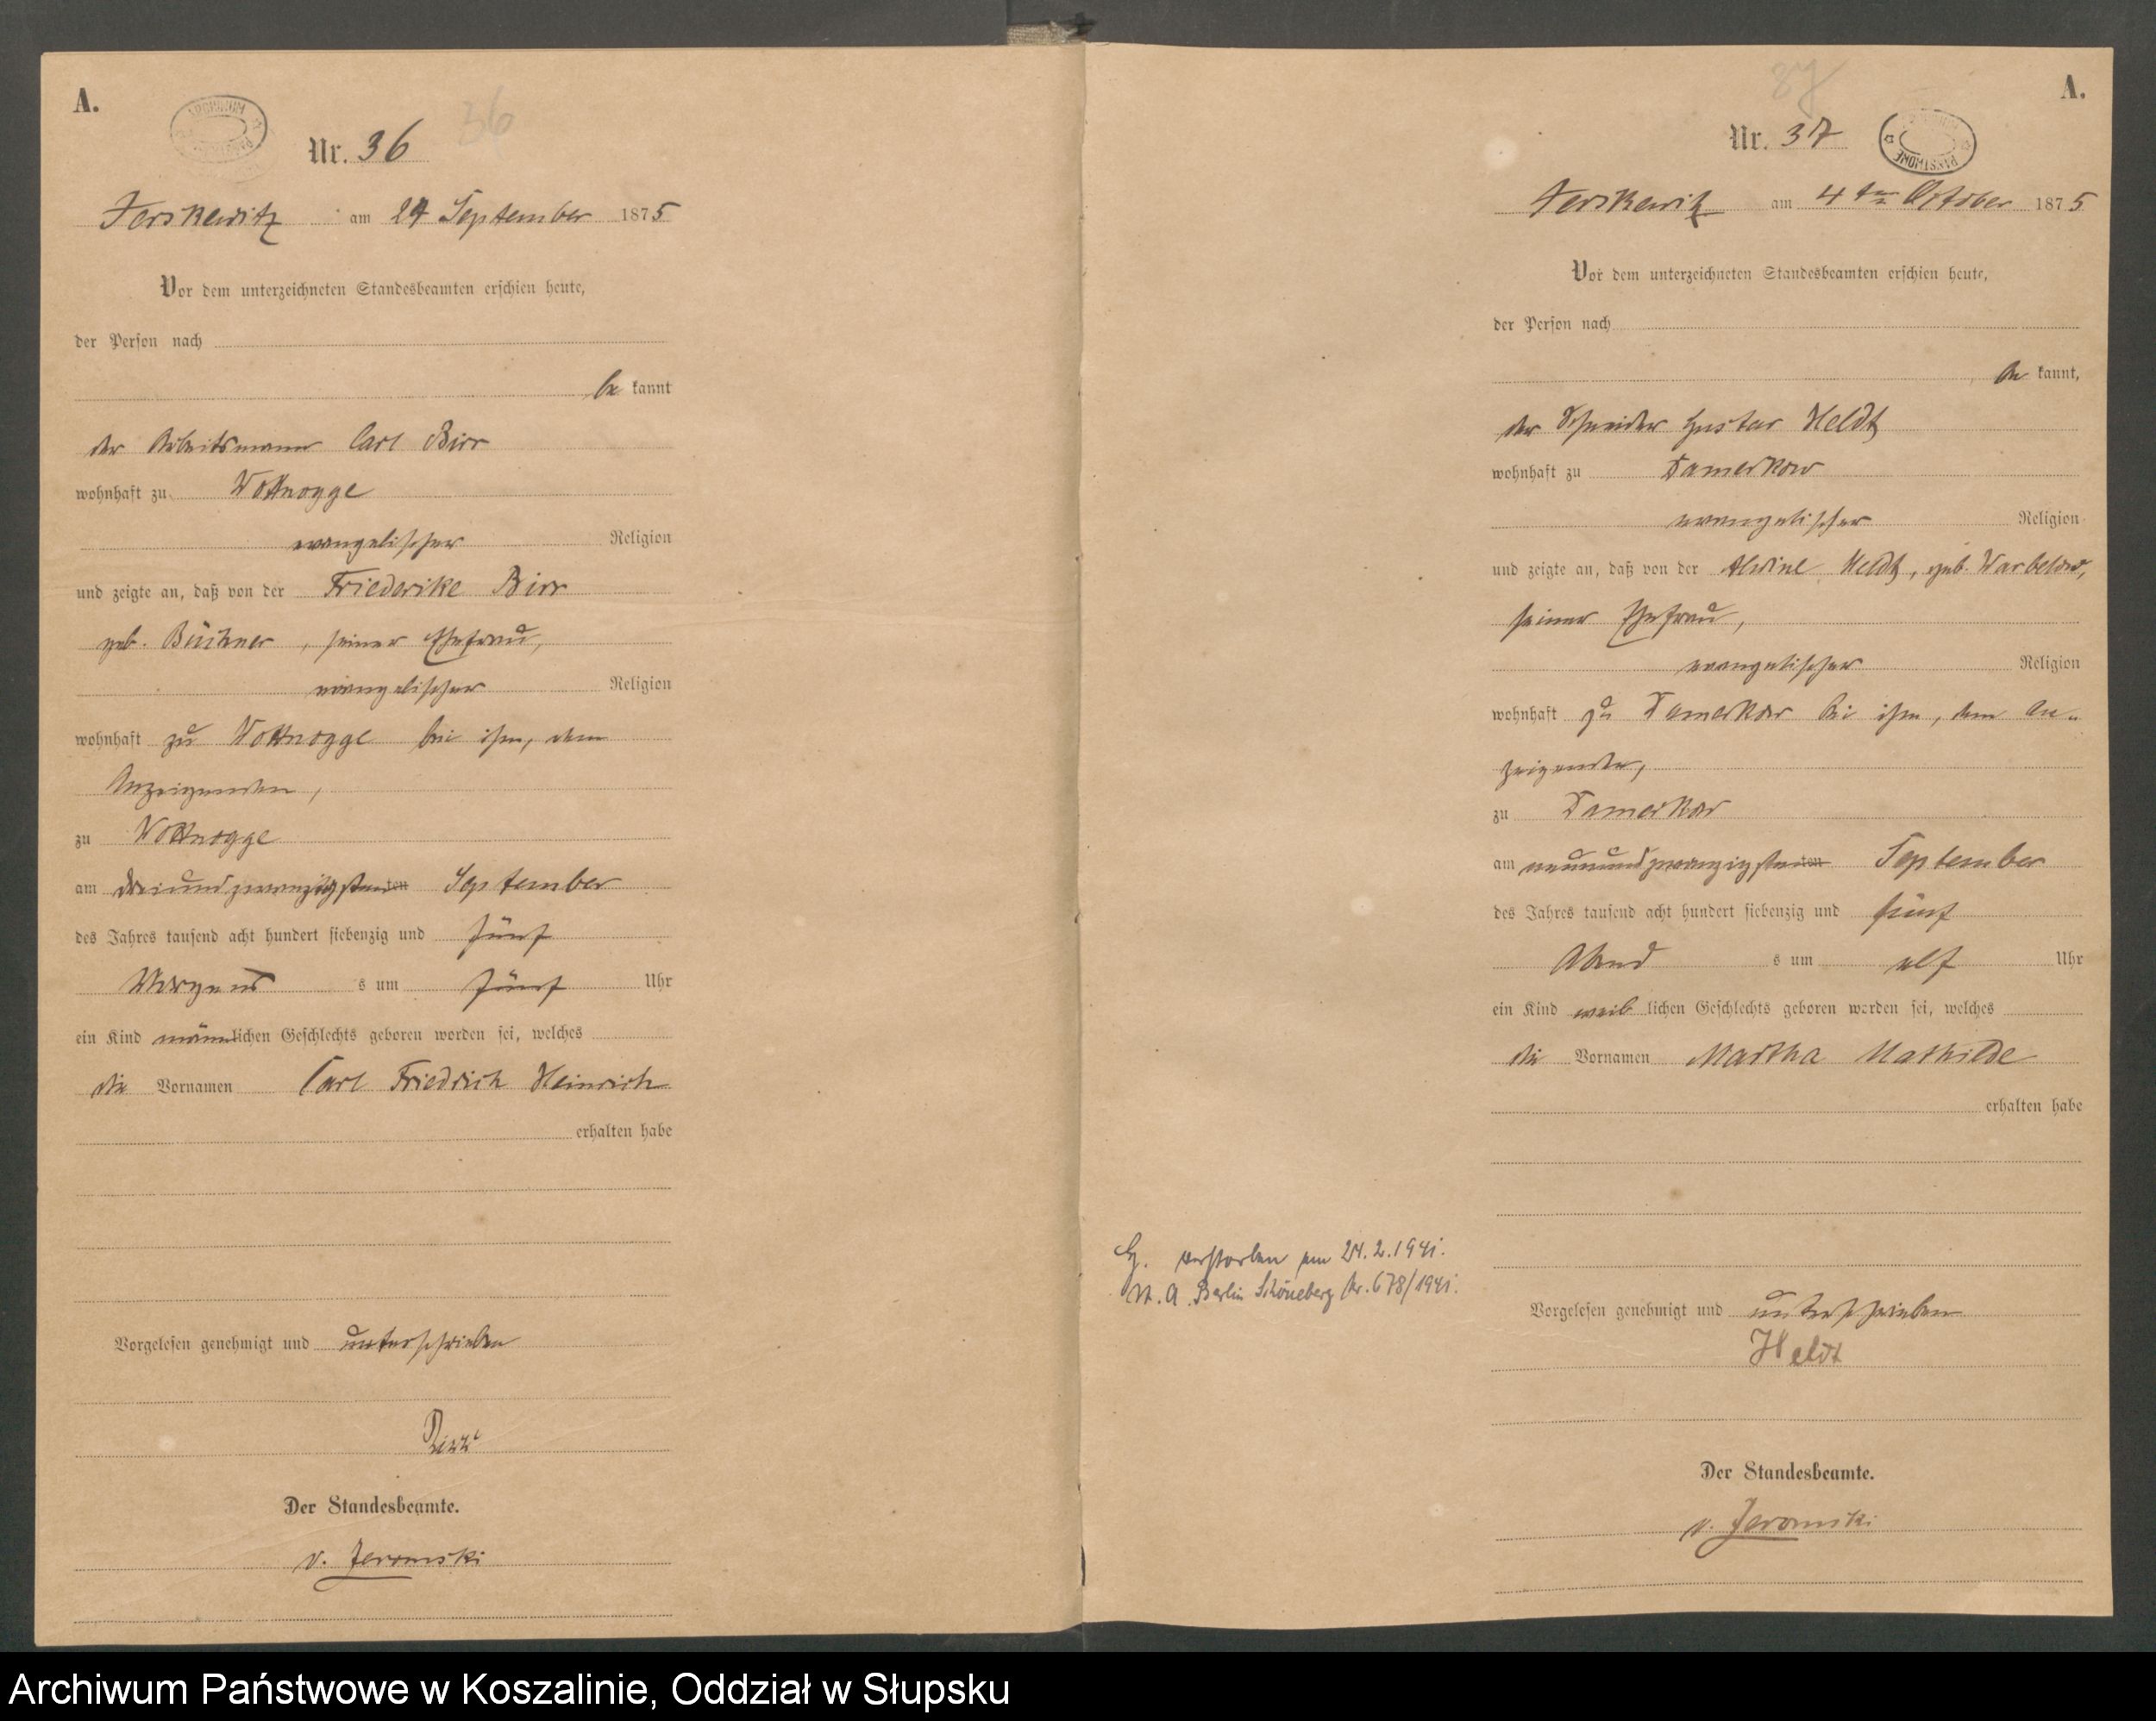 A.
ARCHIWUM
36
Nr. 36
Jerskewitz am 24 September 1875
Vor dem unterzeichneten Standesbeamten erschien heute,
der Person nach
be kannt
der Arbeitsmann Carl Birr
wohnhaft zu Wottnogge
evangelischer Religion
und zeigte an, daß von der Friederike Birr
geb. Büchner, seiner Ehefrau,
evangelischer Religion
wohnhaft zu Wottnogge bei ihm, dem
Anzeigenden,
zu Wottnogge
am dreiundzwanzigsten ten September
des Jahres tausend acht hundert siebenzig und fünf
Morgens s um fünf Uhr
ein Kind männlichen Geschlechts geboren worden sei, welches
die Vornamen Carl Friedrich Heinrich
erhalten habe
Vorgelesen genehmigt und unterschrieben
Birr
Der Standesbeamte.
v. Jeromski
A.
37
Nr. 37
PAŃSTWOWE
Jerskewitz am 4ten October 1875
Vor dem unterzeichneten Standesbeamten erschien heute,
der Person nach
be kannt,
der Schneider Gustav Heldt
wohnhaft zu Damerkow
evangelischer Religion
und zeigte an, daß von der Alwine Heldt, geb. Warbelow,
seiner Ehefrau,
evangelischer Religion
wohnhaft zu Damerkow bei ihm, dem An-
zeigenden,
zu Damerkow
am neunundzwanzigsten ten September
des Jahres tausend acht hundert siebenzig und fünf
Abend s um elf Uhr
ein Kind weib lichen Geschlechts geboren worden sei, welches
die Vornamen Martha Mathilde
erhalten habe
verstorben am 24.2.1941.
St. A. Berlin Schöneberg Nr. 678/1941.
Vorgelesen genehmigt und unterschrieben
Heldt
Der Standesbeamte.
v. Jeromski
Archiwum Państwowe w Koszalinie, Oddział w Słupsku